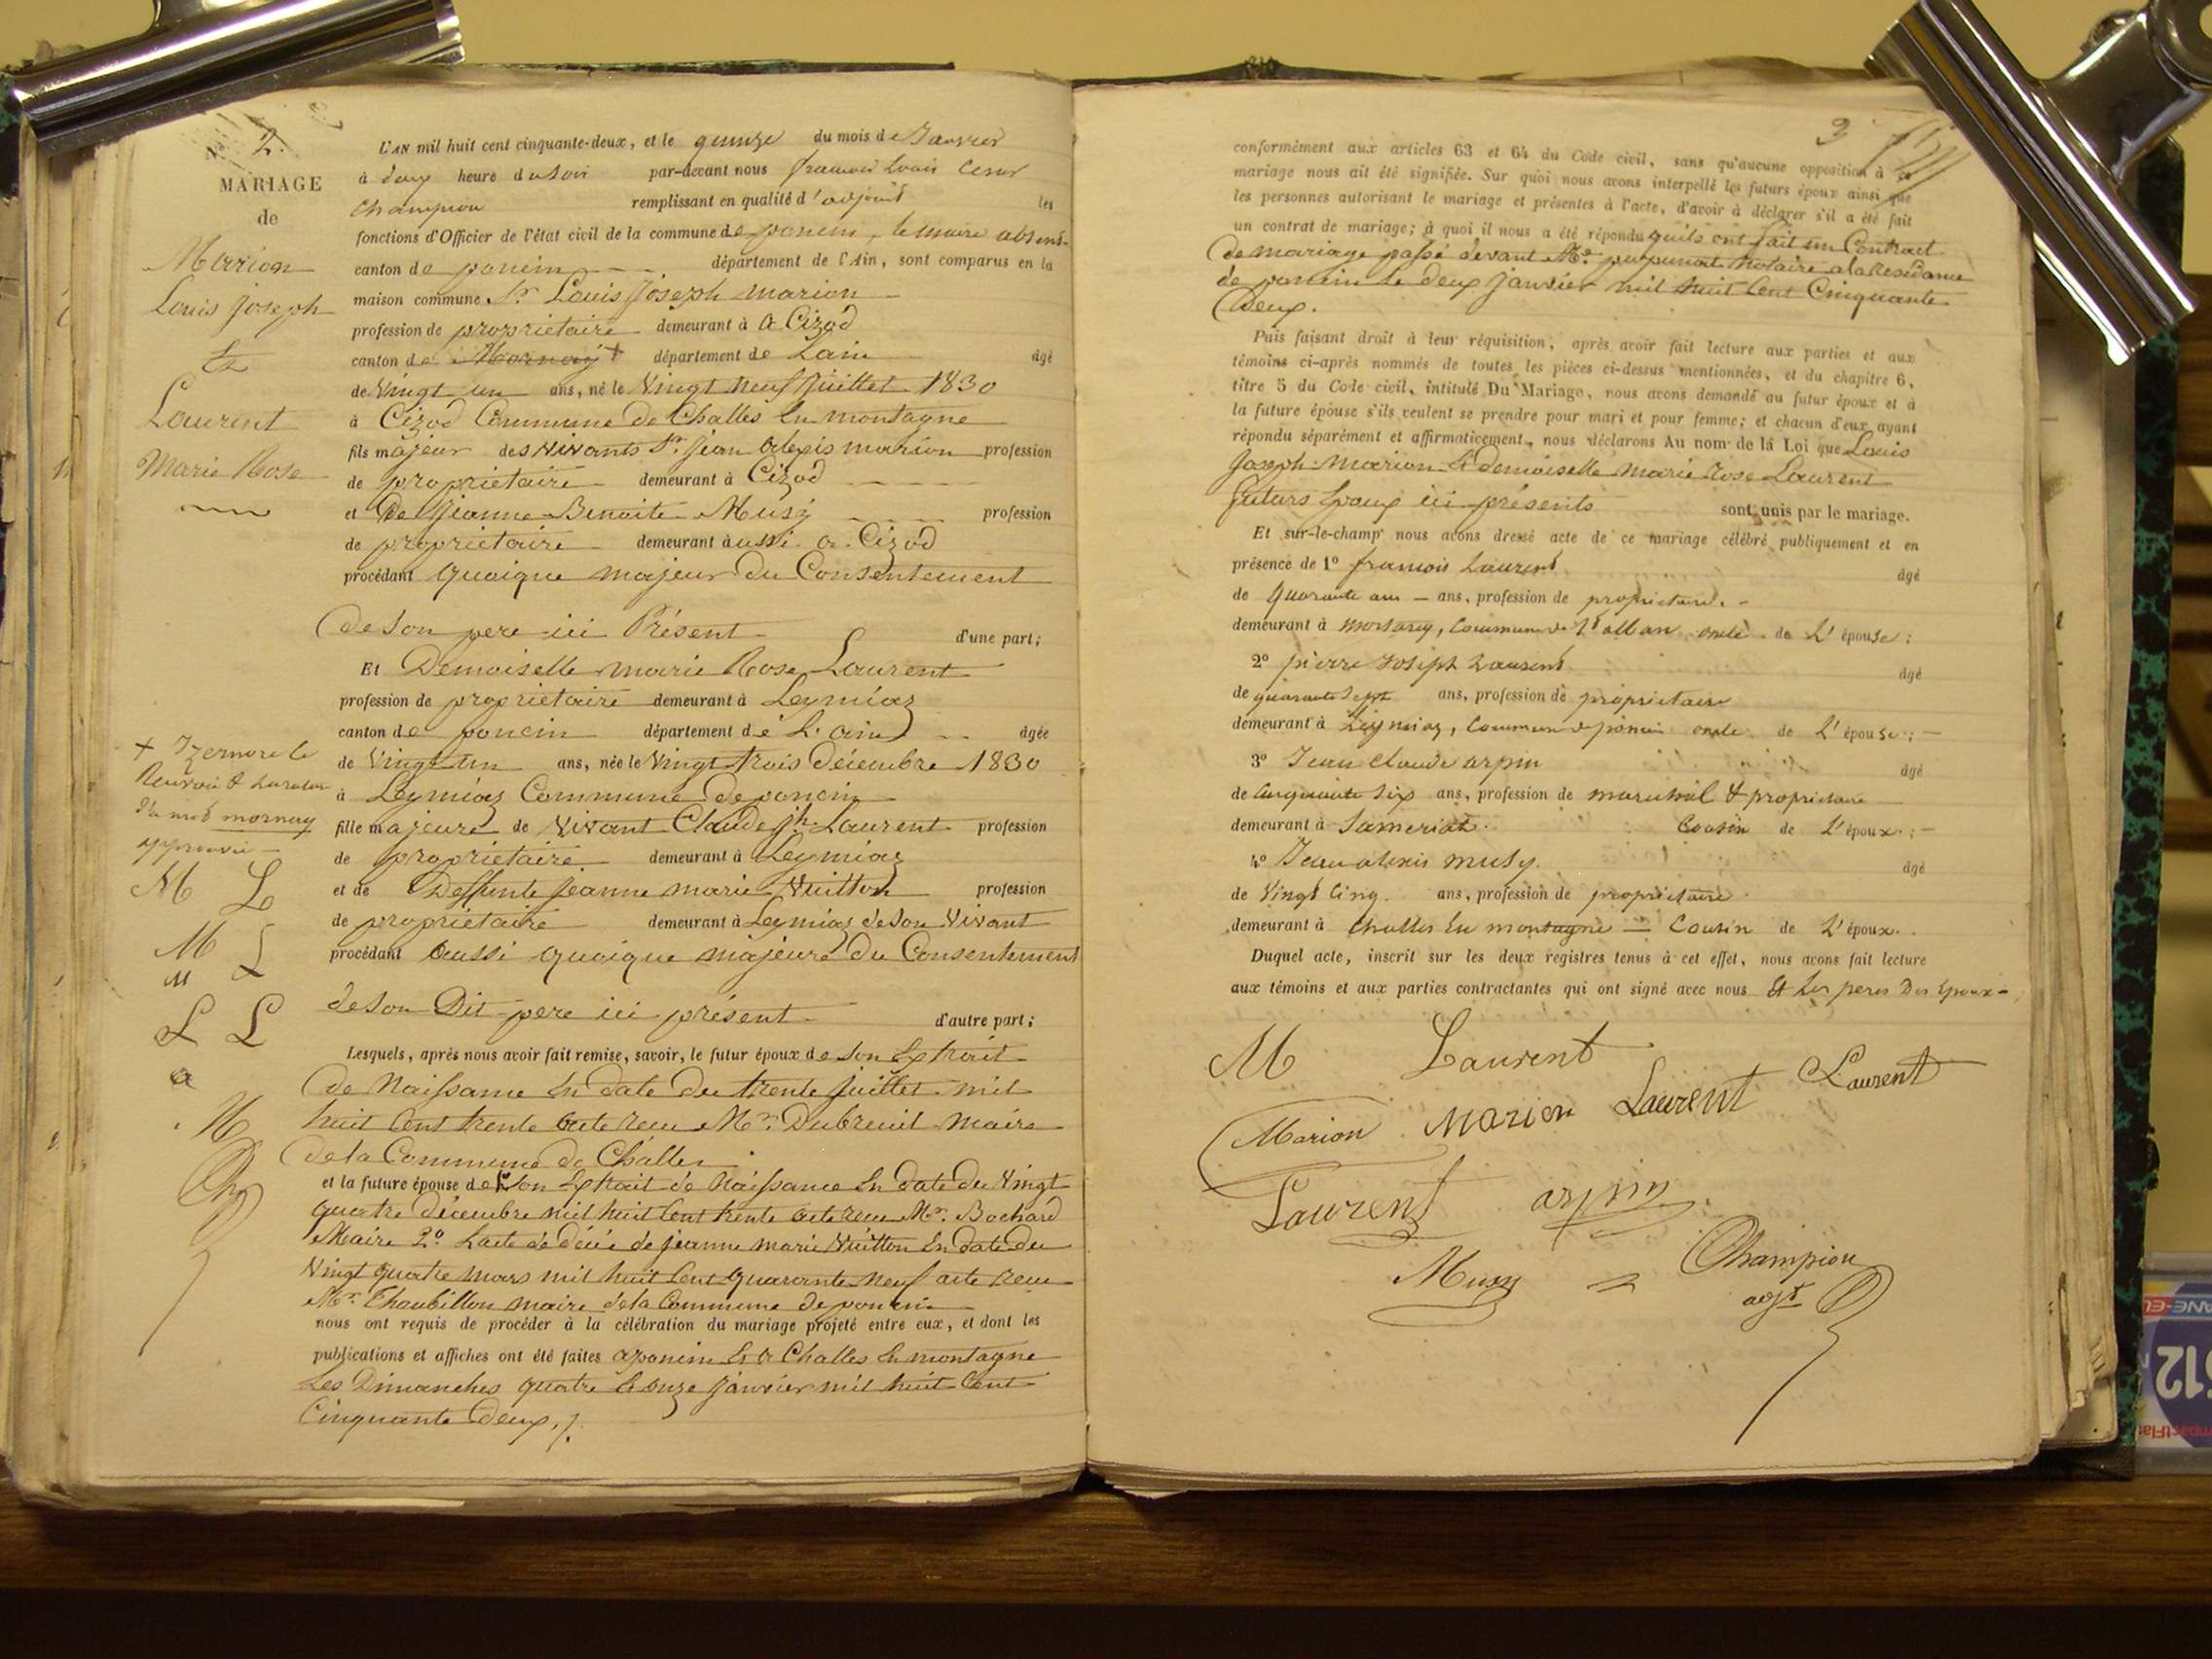 N° 2.
MARIAGE
de
Marion
Louis joseph
Et
Laurent
Marie Rose
L'AN mil huit cent cinquante-deux, et le quinze du mois de Janvier
à deux heure du soir par-devant nous francois Louis Cesar
Champion remplissant en qualité d'adjoint les
fonctions d'Officier de l'état civil de la commune de poncin, le maire absent
canton de poncin département de l'Ain, sont comparus en la
maison commune Sr. Louis Joseph Marion
profession de propriétaire demeurant à a Cizod
canton de Mornay + département de Lain âgé
de Vingt un ans, né le Vingt neuf juillet 1830
à Cizod Commune de Challes En montagne
fils majeur des Vivants Sr. jean alexis marion profession
de propriétaire demeurant à Cizod
et De jeanne Benoite Musy profession
de propriétaire demeurant à aussi a Cizod
procédant quoique majeur du Consentement
de Son pere ici Présent d'une part;
Et Demoiselle marie Rose Laurent
profession de propriétaire demeurant à Leymiaz
canton de poncin département de L'ain âgée
de Vingt un ans, née le Vingt trois décembre 1830
à Leymiaz Commune de poncin
fille majeure de Vivant Claude jh. Laurent profession
de propriétaire demeurant à Leymiaz
et de Deffunte jeanne marie Vuitton profession
de propriétaire demeurant à Leymiaz de Son Vivant
procédant aussi quoique majeure du Consentement
de Son Dit pere ici présent d'autre part;
+ Izernore le
Renvoi &
du mot mornay
approuvé
M L
M L
M
L L
a
M
Ch
Lesquels, après nous avoir fait remise, savoir, le futur époux de Son Extrait
de Naissance En date du trente juillet mil
huit Cent trente acte recu Mr. Dubreuil maire
de la Commune de Challes
et la future épouse de Son Extrait de Naissance En date du Vingt
quatre décembre mil huit Cent trente acte recu Mr. Bochard
Maire 2° Lacte de décés de jeanne marie Vuitton En date du
Vingt quatre mars mil huit Cent quarante neuf acte recu
Mr. Thoubillon maire de la Commune de poncin
nous ont requis de procéder à la célébration du mariage projeté entre eux, et dont les
publications et affiches ont été faites a poncin Et a Challes En montagne
Les Dimanches quatre Et onze janvier mil huit Cent
Cinquante deux ./.
3
conformément aux articles 63 et 64 du Code civil, sans qu'aucune opposition à ce
mariage nous ait été signifiée. Sur quoi nous avons interpellé les futurs époux ainsi que
les personnes autorisant le mariage et présentes à l'acte, d'avoir à déclarer s'il a été fait
un contrat de mariage; à quoi il nous a été répondu quils ont fait un Contract
de mariage passé devant Me. notaire a la Residance
de poncin Le deux janvier mil huit Cent Cinquante
Deux.
Puis faisant droit à leur réquisition, après avoir fait lecture aux parties et aux
témoins ci-après nommés de toutes les pièces ci-dessus mentionnées, et du chapitre 6,
titre 5 du Code civil, intitulé Du Mariage, nous avons demandé au futur époux et à
la future épouse s'ils veulent se prendre pour mari et pour femme; et chacun d'eux ayant
répondu séparément et affirmativement, nous déclarons Au nom de la Loi que Louis
Joseph Marion Et Demoiselle Marie Rose Laurent
futurs Epoux ici présents sont unis par le mariage.
Et sur-le-champ nous avons dressé acte de ce mariage célébré publiquement et en
présence de 1° francois Laurent âgé
de quarante ans, profession de propriétaire.
demeurant à mortarey, Commune de St alban oncle de L'épouse;
2° pierre Joseph Laurent âgé
de quarante Sept ans, profession de propriétaire
demeurant à Leymiaz, Commune de poncin oncle de L'épouse;
3° Jean Claude arpin âgé
de Cinquante Six ans, profession de marechal & propriétaire
demeurant à Samériat. Cousin de L'époux;
4° Jean alexis musy. âgé
de Vingt Cinq. ans, profession de propriétaire.
demeurant à Challes En montagne Cousin de L'époux.
Duquel acte, inscrit sur les deux registres tenus à cet effet, nous avons fait lecture
aux témoins et aux parties contractantes qui ont signé avec nous Et Les peres Des Epoux
M Laurent
Marion Marion Laurent Laurent
Laurent arpin
Musy Champion
adjt